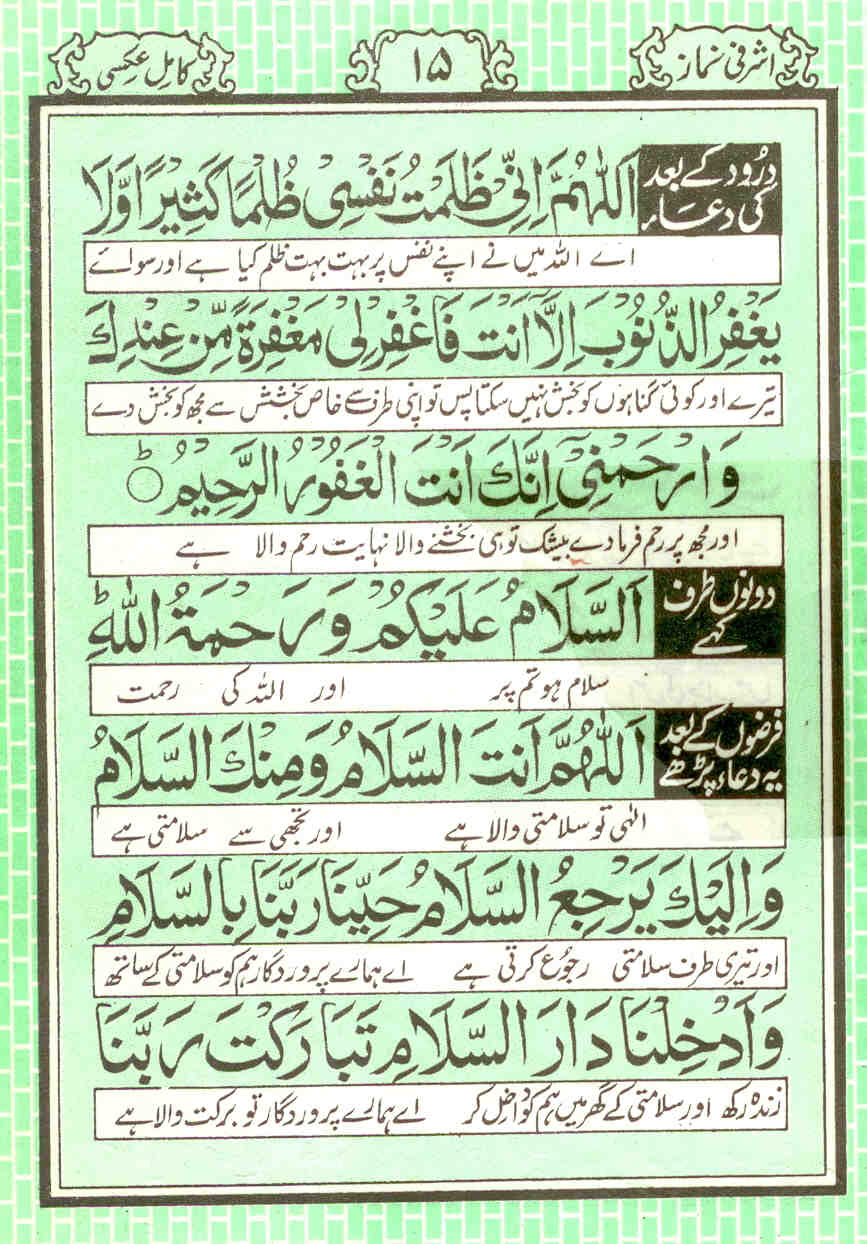 اشرفی نماز
۱۵
کامل عکسی
درود کے بعد
کی دعاء
اَللّٰهُمَّ اِنِّیْ ظَلَمْتُ نَفْسِیْ ظُلْمًا كَثِیْرًا وَّلَا
اے اللہ میں نے اپنے نفس پر بہت بہت ظلم کیا ہے اور سوائے
یَغْفِرُ الذُّنُوْبَ اِلَّا اَنْتَ فَاغْفِرْلِیْ مَغْفِرَةً مِّنْ عِنْدِكَ
تیرے اور کوئی گناہوں کو بخش نہیں سکتا پس تو اپنی طرف سے خاص بخشش سے مجھ کو بخش دے
وَارْحَمْنِیْ اِنَّكَ اَنْتَ الْغَفُوْرُ الرَّحِیْمُ ط
اور مجھ پر رحم فرما دے بیشک تو ہی بخشنے والا نہایت رحم والا ہے
دونوں طرف
کہے
اَلسَّلَامُ عَلَیْكُمْ وَرَحْمَةُ اللّٰهِ ط
سلام ہو تم پر اور اللہ کی رحمت
فرضوں کے بعد
یہ دعاء پڑھے
اَللّٰهُمَّ اَنْتَ السَّلَامُ وَمِنْكَ السَّلَامُ
الٰہی تو سلامتی والا ہے اور تجھی سے سلامتی ہے
وَاِلَیْكَ یَرْجِعُ السَّلَامُ حَیِّنَا رَبَّنَا بِالسَّلَامِ
اور تیری طرف سلامتی رجوع کرتی ہے اے ہمارے پروردگار ہم کو سلامتی کے ساتھ
وَاَدْخِلْنَا دَارَ السَّلَامِ تَبَارَكْتَ رَبَّنَا
زندہ رکھ اور سلامتی کے گھر میں ہم کو داخل کر اے ہمارے پروردگار تو برکت والا ہے